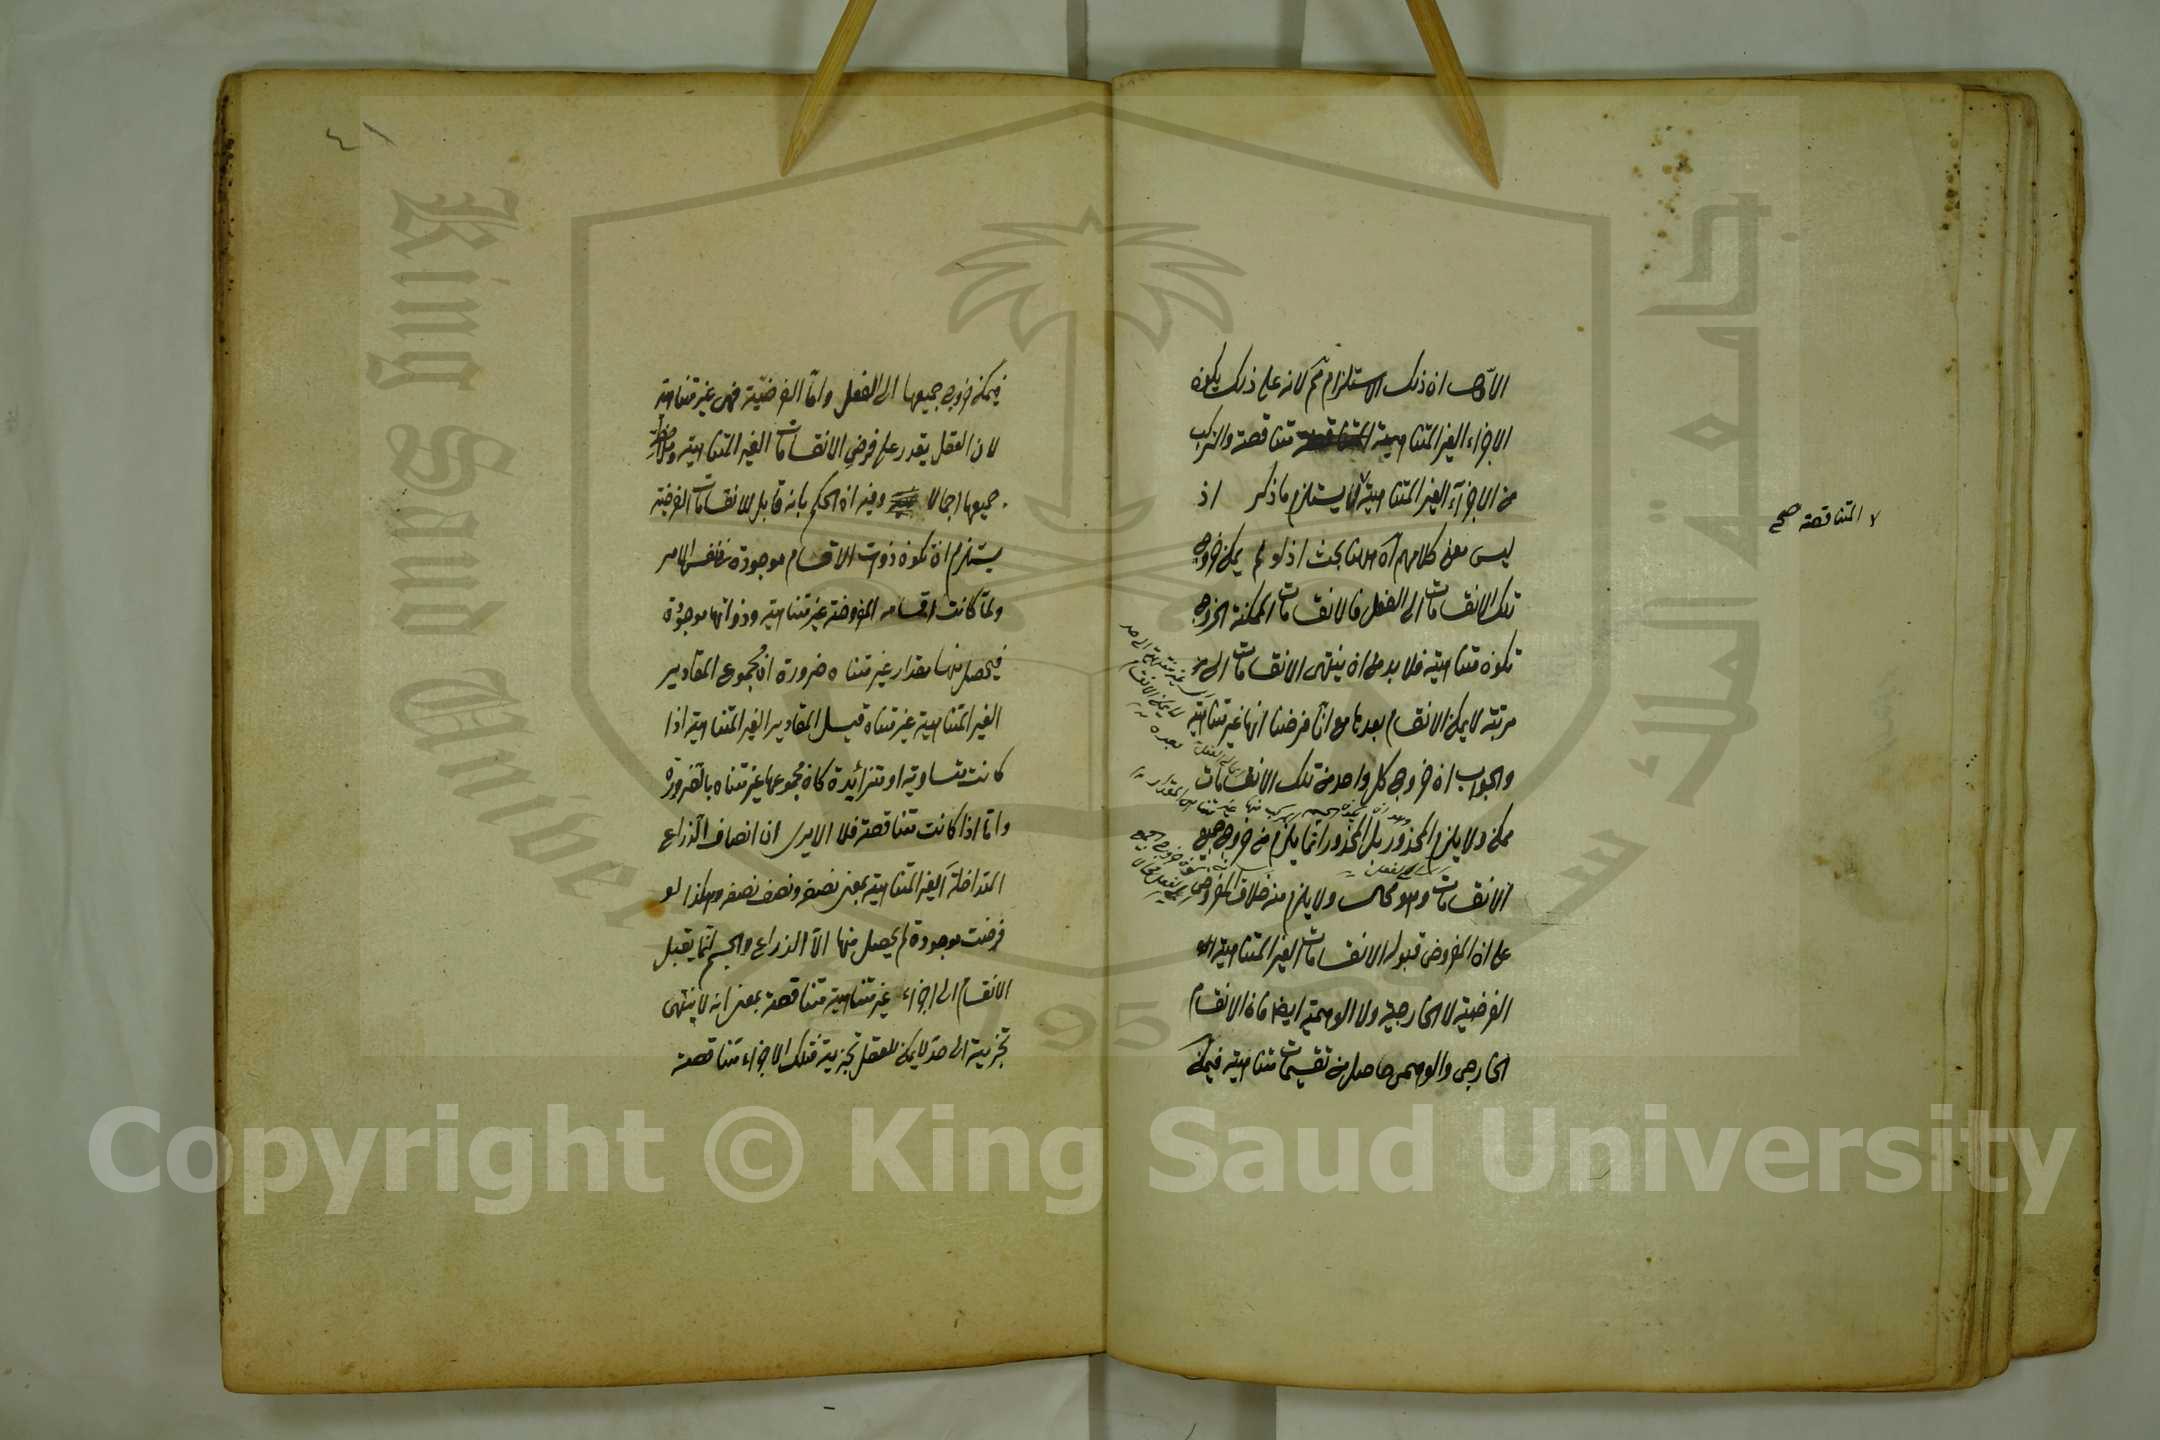 الا ان ذلك الاستلزام مم لانه على ذلك يكون
الاجزاء الغير المتناهية متناقصة والتركب
من الاجزاء الغير المتناهية لا يستلزم ما ذكر اذ
لا المتناقصة صح
ليس معنى كلامهم بحث اذ لو لم يمكن خروج
تلك الانقسامات الى الفعل فالانقسامات الممكنة الخروج
تكون متناهية فلا بد من ان ينتهى الانقسامات الى
مرتبة لا يمكن الانقسام بعدها مع انا فرضنا انها غير متناهية
والجواب ان خروج كل واحد من تلك الانقسامات
ممكن ولا يلزم المحذور بل المحذور انما يلزم من خروج جميع
الانقسامات وهو محال ولا يلزم منه خلاف المفروض
على ان المفروض قبوله الانقسامات الغير المتناهية
الفرضية لا الخارجية ولا الوهمية ايضا فان الانقسام
الخارجى والوهمى حاصل من تقسيمات متناهية فيمكن
٤١
فيمكن خروج جميعها الى الفعل واما الفرضية فهى غير متناهية
لان العقل يقدر على فرض الانقسامات الغير المتناهية
جميعها اجمالا وفيه ان الحكم بانه قابل للانقسامات الفرضية
يستلزم ان تكون ذوات الاقسام موجودة فى نفس الامر
ولما كانت اقسامه المفروضة غير متناهية وذواتها موجودة
فيحصل منها مقدار غير متناه ضرورة ان مجموع المقادير
الغير المتناهية غير متناه قيل المقادير الغير المتناهية اذا
كانت متساوية او متزايدة كان مجموعها غير متناه بالضرورة
واما اذا كانت متناقصة فلا الا يرى ان انصاف الذراع
المتداخلة الغير المتناهية بمعنى نصفه ونصف نصفه وهكذا لو
فرضت موجودة لم يحصل منها الا الذراع والجسم انما يقبل
الانقسام الى اجزاء غير متناهية متناقصة بمعنى انه لا ينتهى
تجزية الى حد لا يمكن للعقل تجزية فتلك الاجزاء متناقصة
King Saud University
جامعة الملك سعود
195
Copyright © King Saud University